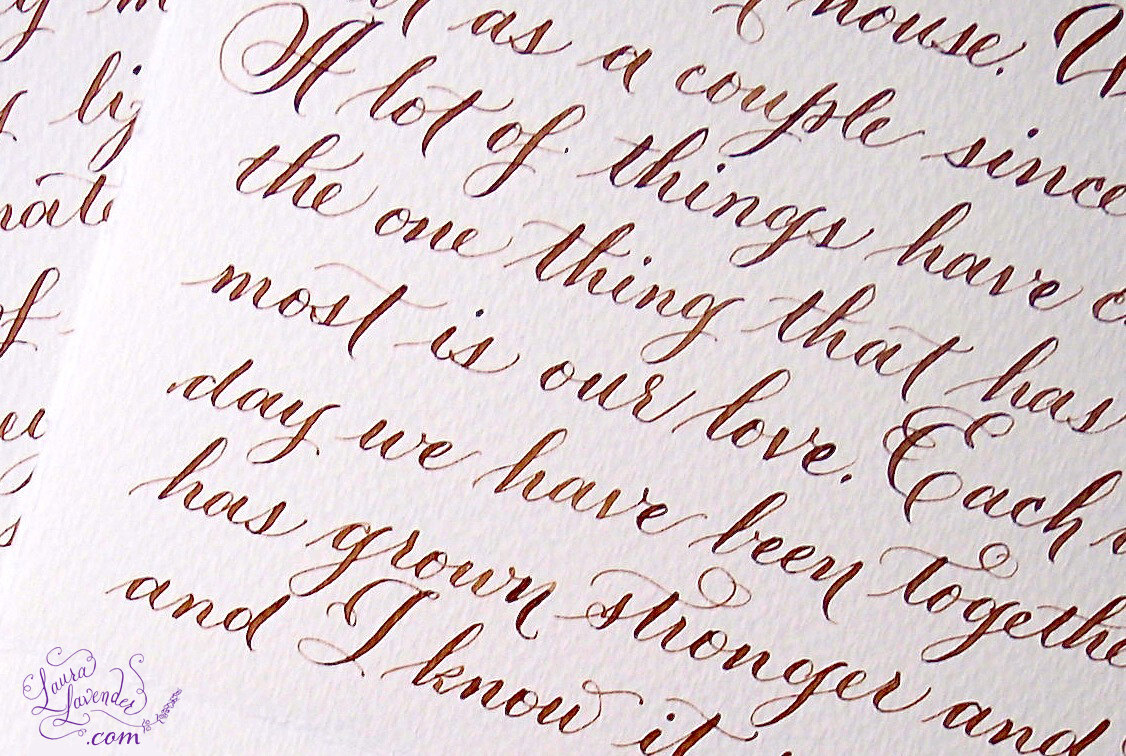 of
house.
as a couple since
A lot of things have
the one thing that has
most is our love. Each
day we have been togethe
has grown stronger and
and I know it
Laura
Lavender
.com